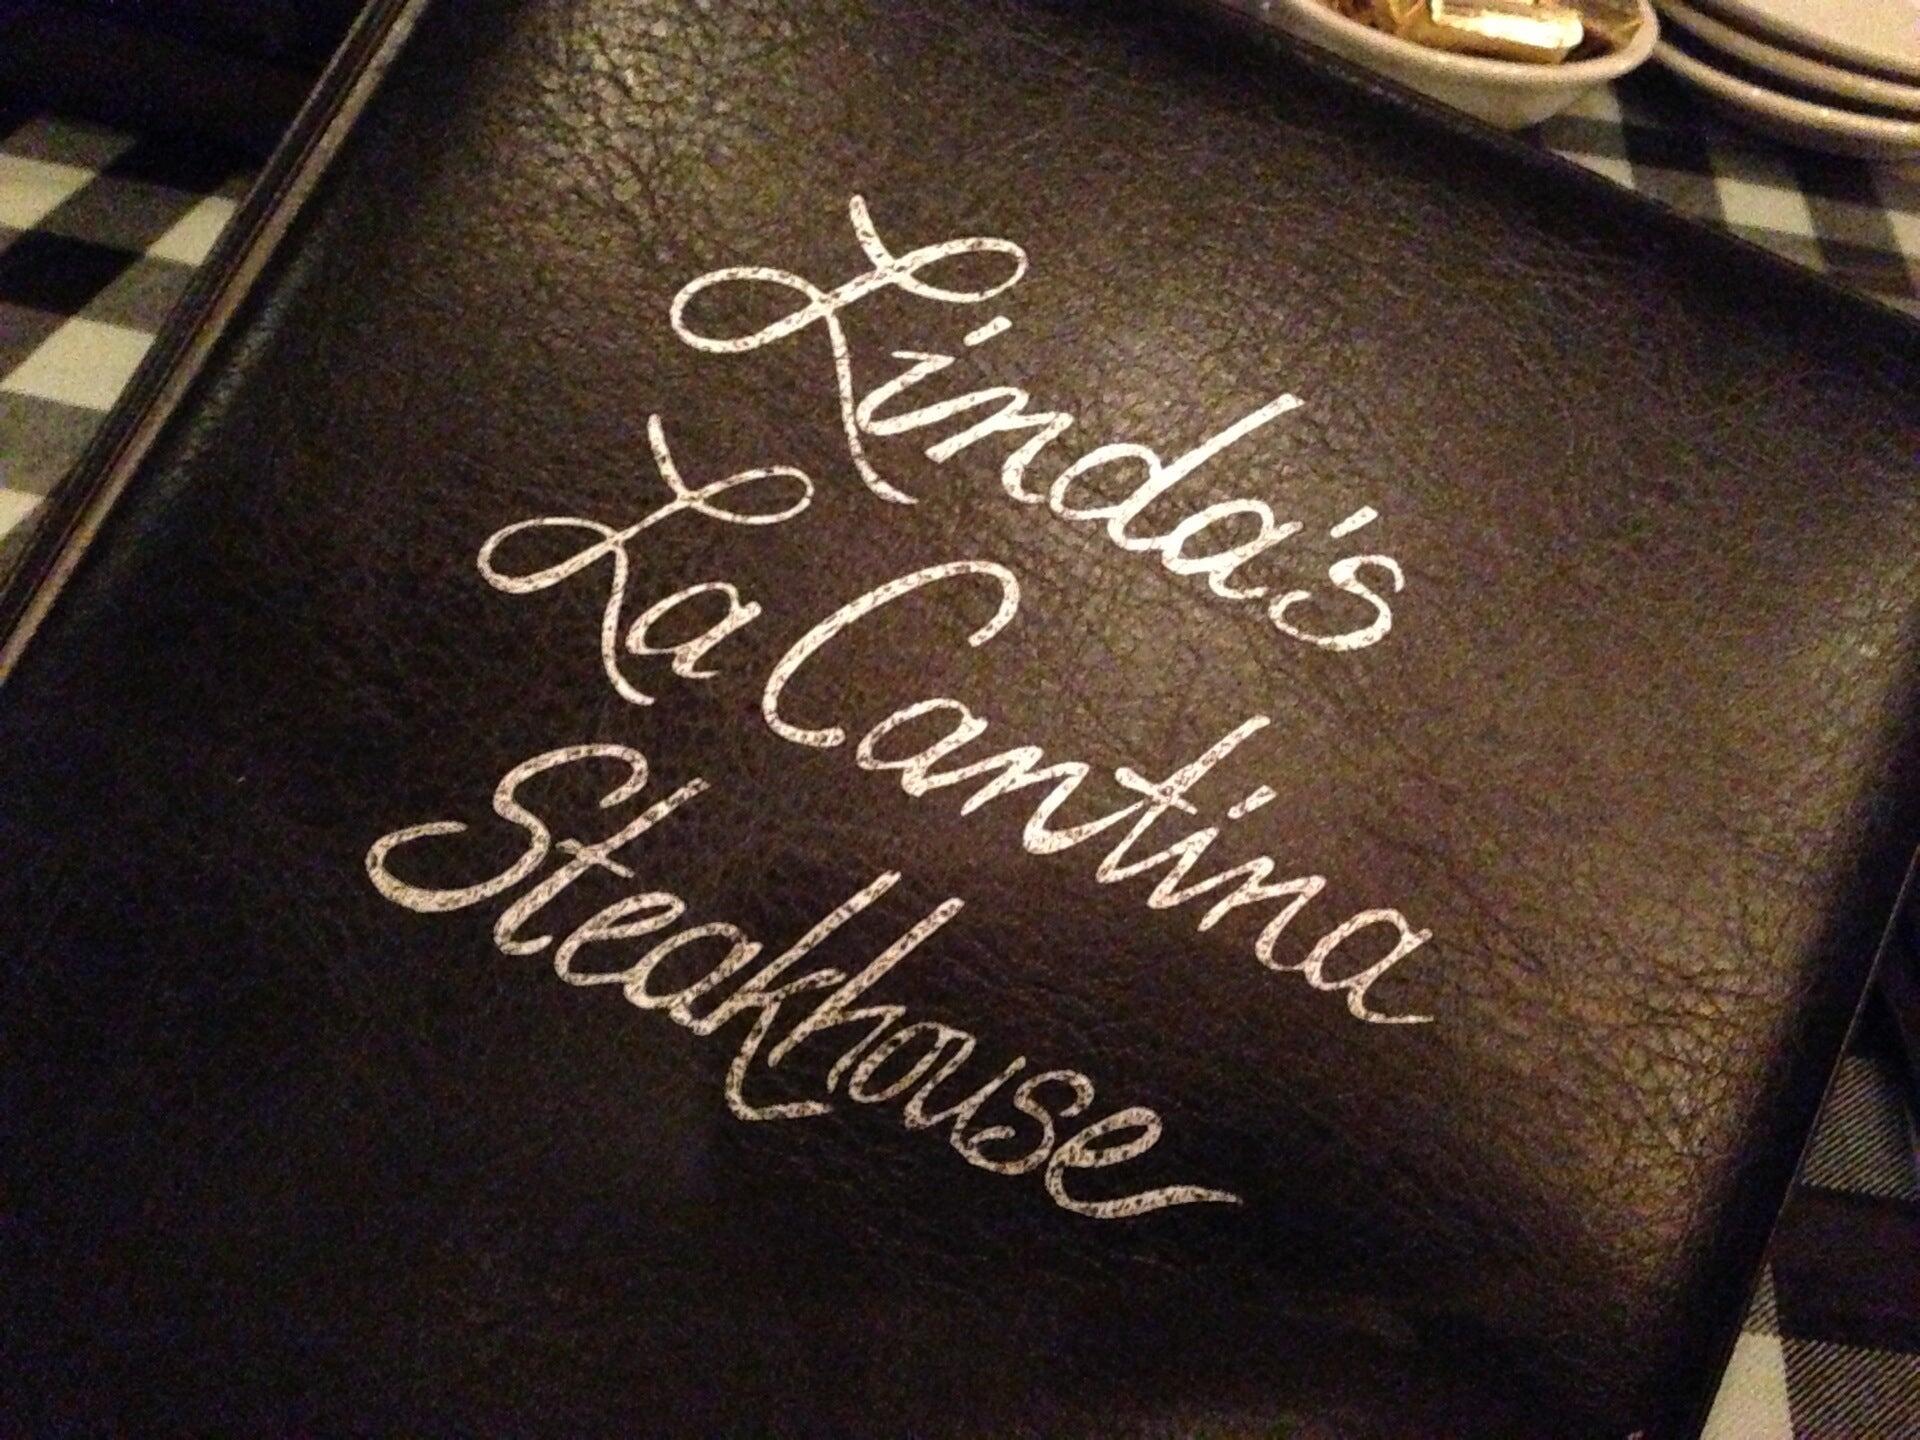 Linda's
La Cantina
Steakhouse